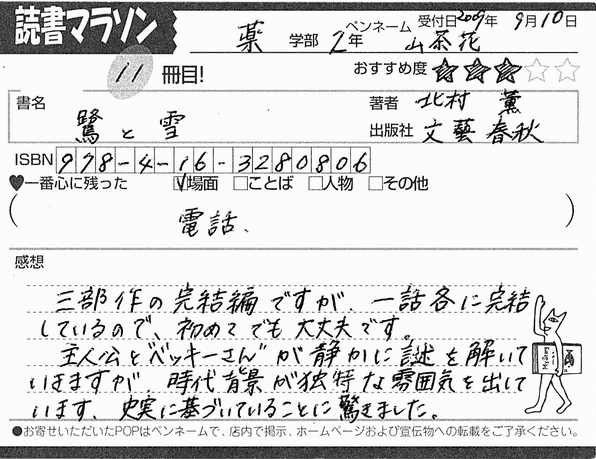 読書マラソン
薬 学部 2年 ペンネーム 山茶花 受付日 2009年 9月10日
11 冊目! おすすめ度 ★★★☆☆
書名 鷺と雪 著者 北村 薫
出版社 文藝春秋
ISBN 978-4-16-3280806
♥一番心に残った ☑場面 □ことば □人物 □その他
( 電話、 )
感想
三部作の完結編ですが、一話各に完結
しているので、初めてでも大丈夫です。
主人公と"ベッキーさん"が静かに謎を解いて
いきますが、時代背景が独特な雰囲気を出して
います。史実に基づいていることに驚きました。
●お寄せいただいたPOPはペンネームで、店内で掲示、ホームページおよび宣伝物への転載をご了承ください。